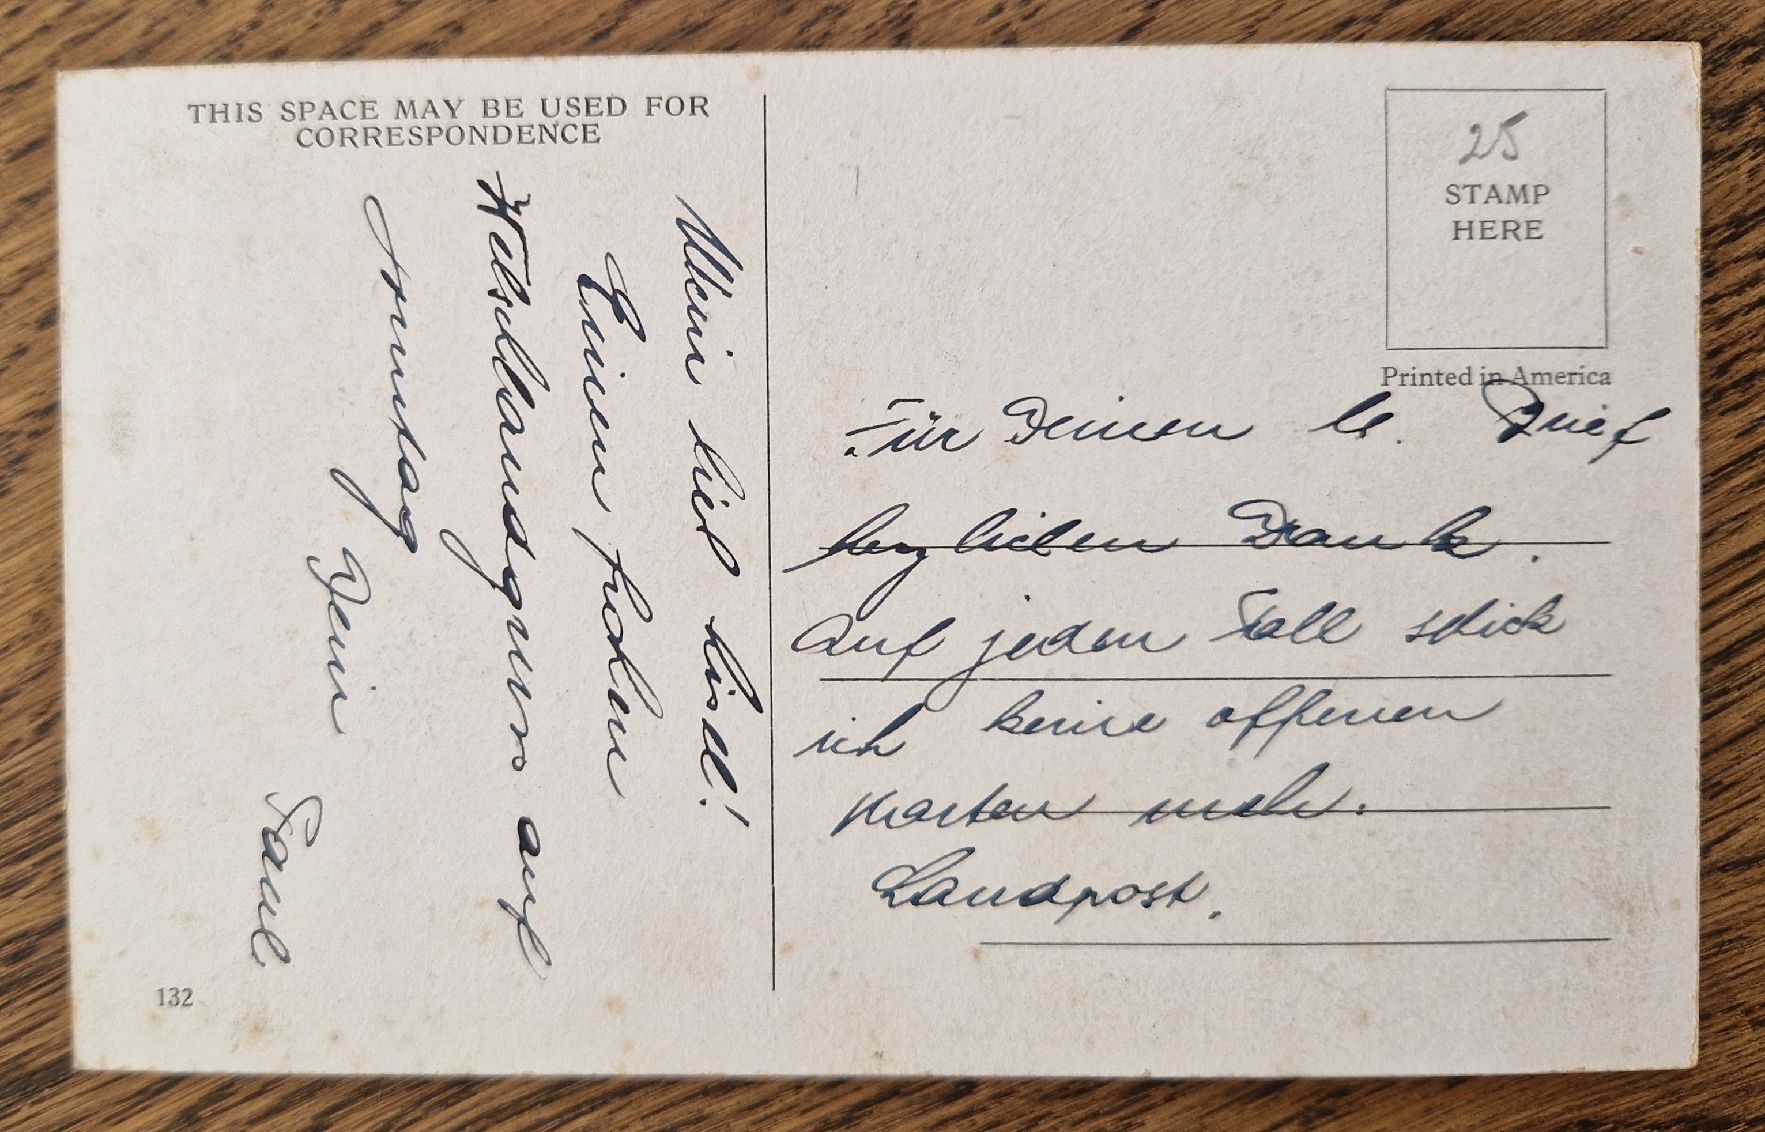 THIS SPACE MAY BE USED FOR
CORRESPONDENCE
Mein lieb Lisel!
Einen frohen
Welschlandgruss auf
Sonntag
Dein
Paul
132
25
STAMP
HERE
Printed in America
Für Deinen lb. Brief
herzlichen Dank.
Auf jeden Fall schick
ich keine offenen
Karten mehr.
Landpost.